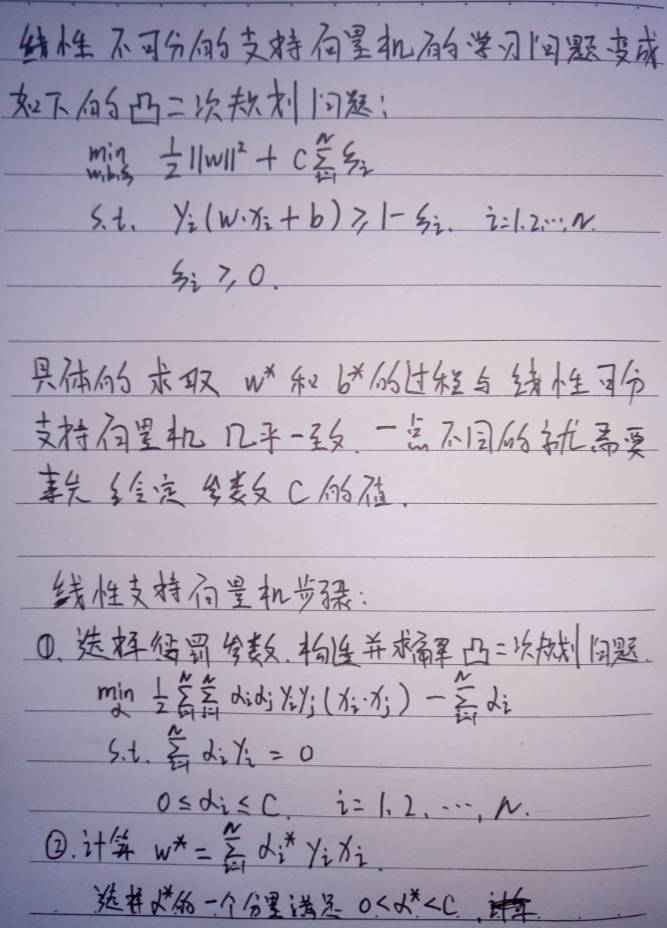 线性不可分的支持向量机的学习问题变成
如下的凸二次规划问题:
min 1/2 ||w||² + C Σ ξi
w,b,ξ i=1 N
s.t. yi(w·xi + b) ≥ 1 - ξi, i=1,2,…,N.
ξi ≥ 0.
具体的求取 w* 和 b* 的过程与线性可分
支持向量机几乎一致.一点不同的就需要
事先给定参数 C 的值.
线性支持向量机步骤:
①.选择惩罚参数.构造并求解凸二次规划问题.
min_α 1/2 Σ_{i=1}^N Σ_{j=1}^N αiαjyiyj(xi·xj) - Σ_{i=1}^N αi
s.t. Σ_{i=1}^N αiyi = 0
0 ≤ αi ≤ C, i=1,2,…,N.
②.计算 w* = Σ_{i=1}^N αi* yi xi.
选择α*的一个分量满足 0<α*<C,